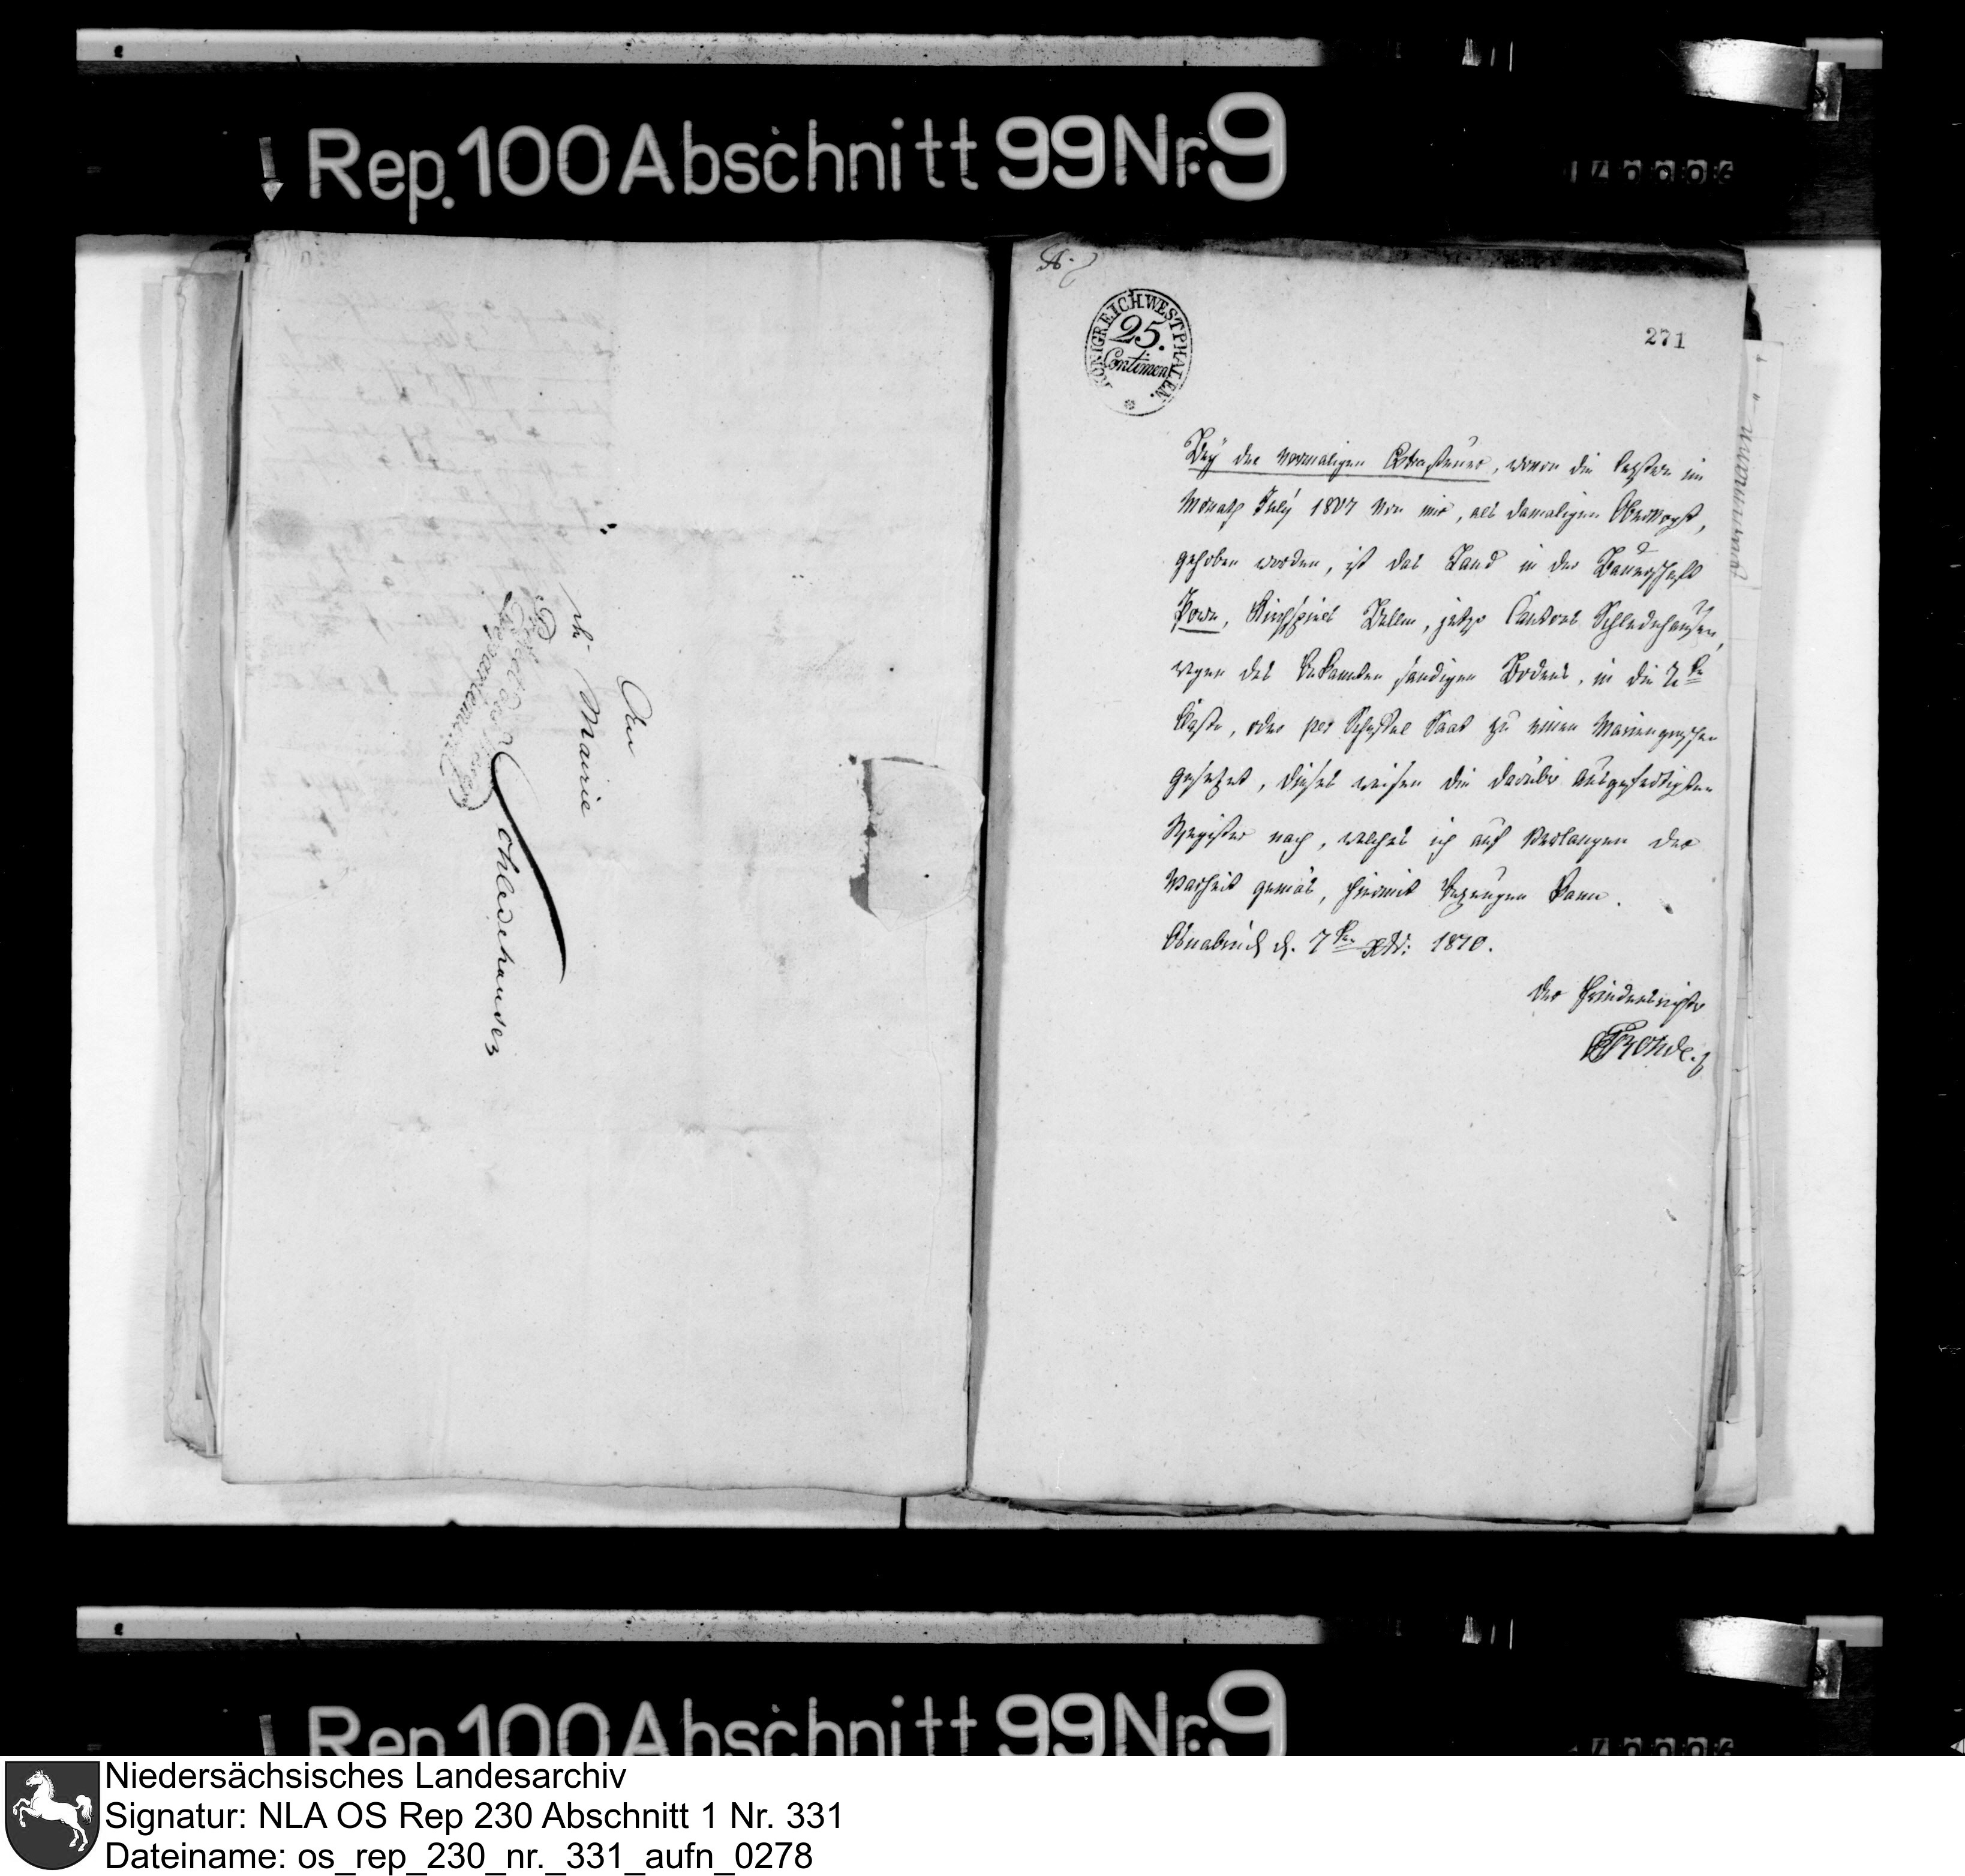 Rep. 100 Abschnitt 99 Nr. 9
An
die Mairie
Schledehausen
A.
KÖNIGREICH WESTPHALEN.
25.
Centimen
271
Bey der vormaligen Extrasteuer, wovon die letztere im
Monath July 1807 von mir, als damaligen Obervogt,
gehoben worden, ist das Land in der Bauerschaft
Powe, Kirchspiels Bellm, jetzo Cantons Schledehausen,
wegen des bekannten sandigen Bodens, in die
Classe, oder per Scheffel Saat zu einen Mariengroschen
gesetzet, dieses weisen die darüber ausgefertigten
Register nach, welches ich auf Verlangen der
Warheit gemäs, hiermit bezeugen kann.
Osnabrück d. 7ten 1810.
der Friedensrichter
Rep. 100 Abschnitt 99 Nr. 9
Niedersächsisches Landesarchiv
Signatur: NLA OS Rep 230 Abschnitt 1 Nr. 331
Dateiname: os_rep_230_nr._331_aufn_0278